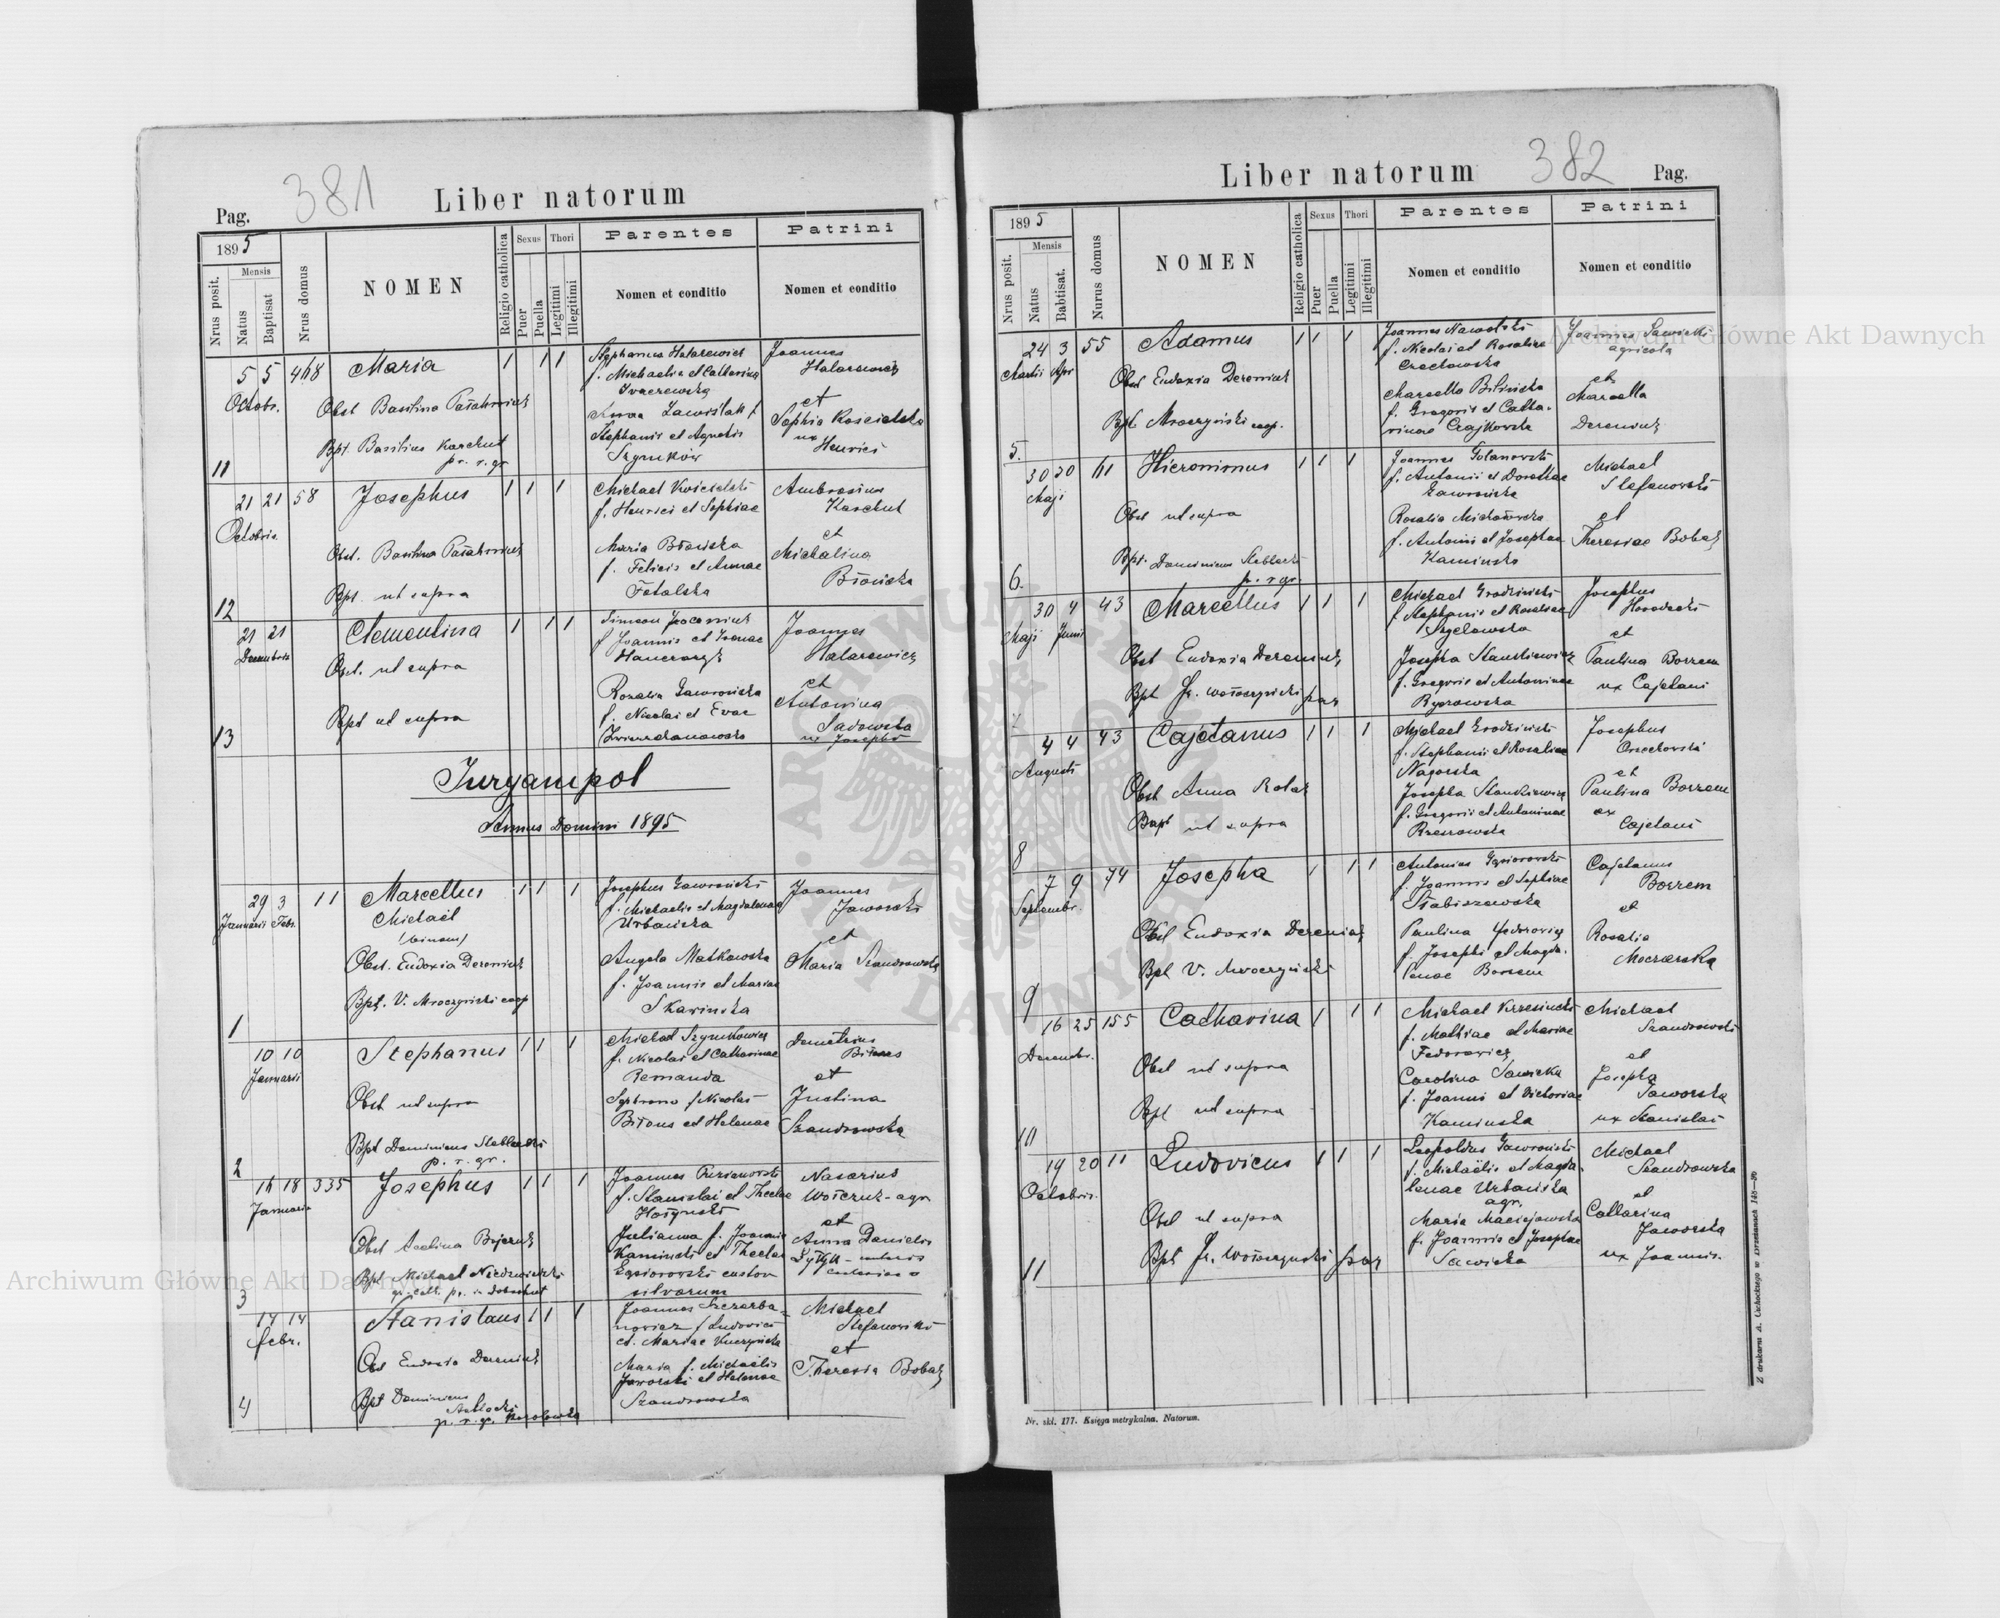 381
Liber natorum
Pag.
1895
Nrus posit.
Mensis
Natus
Baptisat
Nrus domus
NOMEN
Religio catholica
Sexus
Puer
Puella
Thori
Legitimi
Illegitimi
Parentes
Nomen et conditio
Patrini
Nomen et conditio
5 5 468 Maria 1 1 1
Octobr.
Stephanus Halarewicz
f. Michaelis et Catharina
Anna Zawiślak f.
Stephanis et Agnetis
Szymków
Joannes
Halarewicz
et
Sophia Kościelska
ux
Henrici
Obst Basilina
Bpt. Basilius Karchut
pr. r. gr.
11
21 21 58 Josephus 1 1 1
Octobris
Michael Kwicielski
f. Henrici et Sophiae
Maria Błońska
f. Felicis et Annae
Fetalska
Ambrosius
Karchut
et
Michalina
Błońska
Obst. Basilina
Bpt. ut supra
12
21 21 Clementina 1 1 1
Decembris
Simeon
f Joannis et
Rozalia Jaworońska
f. Nicolai et Evae
Joannes
Halarewicz
et
Antonina
Sadowska
ux Josephi
Obst. ut supra
Bpt ut supra
13
Juryampol
Annus Domini 1895
29 3 11 Marcellus 1 1 1
Januarii Febr.
Michaël
(binom)
Josephus Gaworoński
f. Michaelis et Magdalenae
Urbańska
Angela Matkowska
f. Joannis et Mariae
Skawińska
Joannes
Jaworski
et
Maria Szandrowska
Obst. Eudoxia Dereniuk
Bpt. V. Mroczyński coop
1
10 10 Stephanus 1 1 1
Januarii
Michael Szymkowicz
f. Nicolai et Catharinae
Romanda
f Nicolai
Biłous et Helenae
Demetrius
Biłous
et
Justina
Szandrowska
Obst ut supra
Bpt Dominicus Steblecki
p. r. gr.
2
16 18 335 Josephus 1 1 1
Januarii
Joannes
f. Stanislai et Theclae
Julianna f. Joannis
Kaminski et Theclae
Gąsiorowski custos
silvarum
Nasarius
agr.
et
Anna Danielis
Obst
Bpt Michael Niedzwiecki
gr. cath. pr.
3
14 14 Stanislaus 1 1 1
febr.
Joannes Szczerba-
nowicz f Ludovici
et. Mariae
Maria f. Michaëlis
Jaworski et Helenae
Szandrowska
Michael
Stefanowski
et
Theresia Bobak
Obst Eudoxia Dereniuk
Bpt Dominicus
Steblecki
p. r. gr. Korolowka
4
Liber natorum
382
Pag.
1895
Nrus posit.
Mensis
Natus
Babtisat.
Nurus domus
NOMEN
Religio catholica
Sexus
Puer
Puella
Thori
Legitimi
Illegitimi
Parentes
Nomen et conditio
Patrini
Nomen et conditio
24 3 55 Adamus 1 1 1
Martii Apr
Joannes Nawolski
f. Nicolai et Rosaliae
Czechowska
Marcella Bilińska
f. Gregorii et Catha-
rinae Czajkowska
Joannes Sawicki
agricola
et
Marcella
Dereniuk
Obst Eudoxia Dereniuk
Bpt Mroczyński coop.
5.
30 30 111 Hieronimus 1 1 1
Maji
Joannes Golanowski
f. Antonii et Dorotheae
Gaworońska
Rosalia Michałowska
f. Antonii et Josephae
Kaminska
Michael
Stefanowski
et
Theresiae Bobak
Obst ut supra
Bpt. Dominicus Steblecki
p. r. gr.
6.
30 4 43 Marcellus 1 1 1
Maji Junii
Michael Grodziński
f Stephanis et Rosaliae
Josepha Stankiewicz
f. Gregorii et Antoninae
Josephus
et
Paulina Borzem
ux Cajetani
Obst Eudoxia Dereniuk
Bpt Fr. Wołoszyński par
7
4 4 43 Cajetanus 1 1 1
Augusti
Michael Grodziński
f. Stephanii et Rosaliae
Nagorska
Josepha Stankiewicz
f. Gregorii et Antoninae
Rzeszowska
Josephus
Orzechowski
et
Paulina Borzem
ux
Cajetani
Obst Anna Rolak
Bapt ut supra
8
7 9 74 Josepha 1 1 1
Septembr.
Antonius Gąsiorowski
f. Joannis et Sophiae
Słabiszewska
Paulina Fedorowicz
f. Josephi et Magda-
lenae Borzem
Cajetanus
Borzem
et
Rosalia
Moczarska
Obst Eudoxia Dereniuk
Bpt V. Mroczyński
9
16 25 155 Catharina 1 1 1
Decembr.
Michael Krzesinski
f. Mathiae et Mariae
Fedorowicz
Carolina Sawicka
f. Joannis et Victoriae
Kaminska
Michael
Szandrowski
et
Josepha
Jaworska
ux Stanislai
Obst ut supra
Bpt ut supra
10
19 20 11 Ludovicus 1 1 1
Octobris.
Leopoldus Gaworoński
f. Michaëlis et Magda-
lenae Urbańska
agr.
Maria Maciejowska
f. Joannis et Josephae
Sawicka
Michael
Szandrowska
et
Catharina
Jaworska
ux Joannis.
Obst ut supra
Bpt Fr. Wołoszyński par
11
Nr. skl. 177. Księga metrykalna. Natorum.
Z drukarni A. Cichockiego w Brzeżanach 148—90
Archiwum Główne Akt Dawnych
Archiwum Główne Akt Dawnych
ARCHIWUM GŁÓWNE AKT DAWNYCH